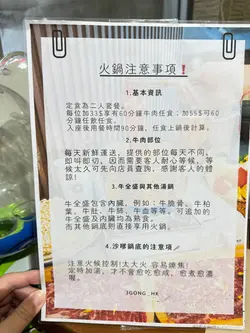 火鍋注意事項❗
1.基本資訊
定食為二人套餐。
每位加33$享有60分鐘牛肉任食；加55$可60
分鐘任飲任食。
入座後用餐時間90分鐘，任食上鍋後計算。
2.牛肉部位
每天新鮮運送，提供的部位每天不同，
即叫即切，因而需要客人耐心等候，等
候太久可先向店員查詢，感謝客人的體
諒！
3.牛全盛與其他湯鍋
牛全盛包含內臟，例如：牛脆骨、牛柏
葉、牛肚、牛腩、牛血等等，可追加的
牛全盛及內臟均為熟食。
而其他鍋底則直接享用火鍋。
4.沙嗲鍋底的注意項
注意火候控制(太大火 容易燶焦)
定時加湯，才不會愈吃愈咸，愈煮愈濃
喔。
JGONG_HK